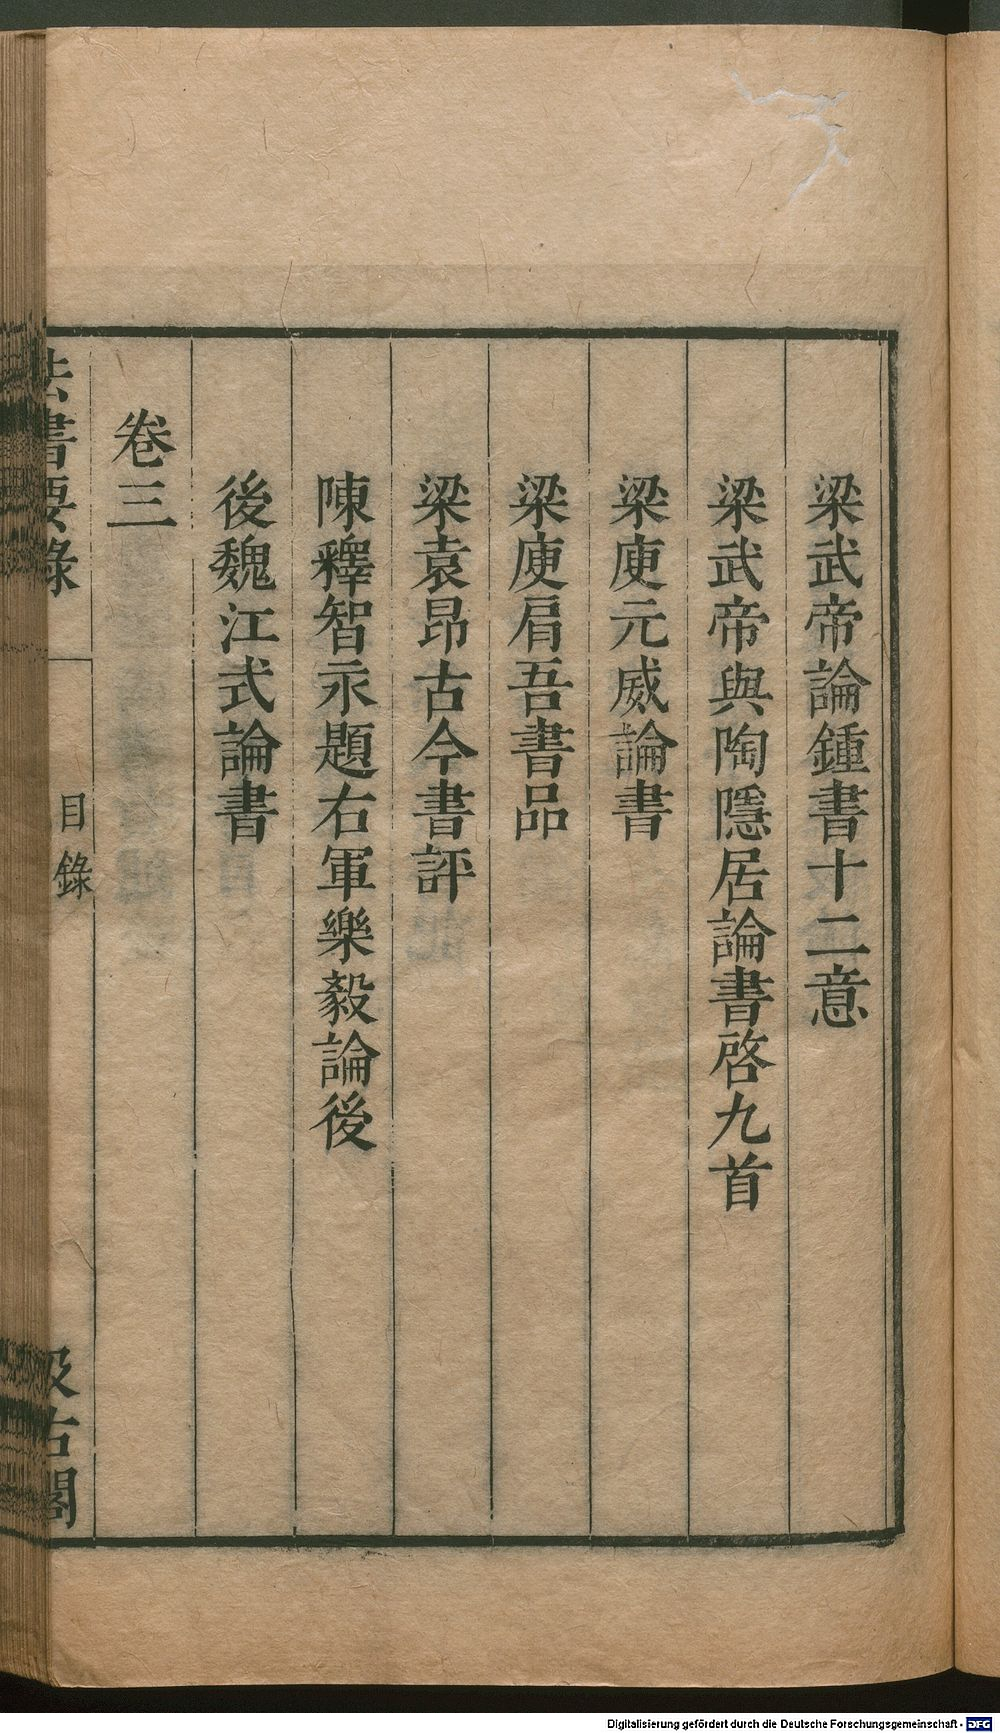 梁武帝論鍾書十二意
梁武帝與陶隱居論書啓九首
梁庾元威論書
梁庾肩吾書品
梁袁昂古今書評
陳釋智永題右軍樂毅論後
後魏江式論書
卷三
法書要錄
目錄
汲古閣
Digitalisierung gefördert durch die Deutsche Forschungsgemeinschaft - DFG